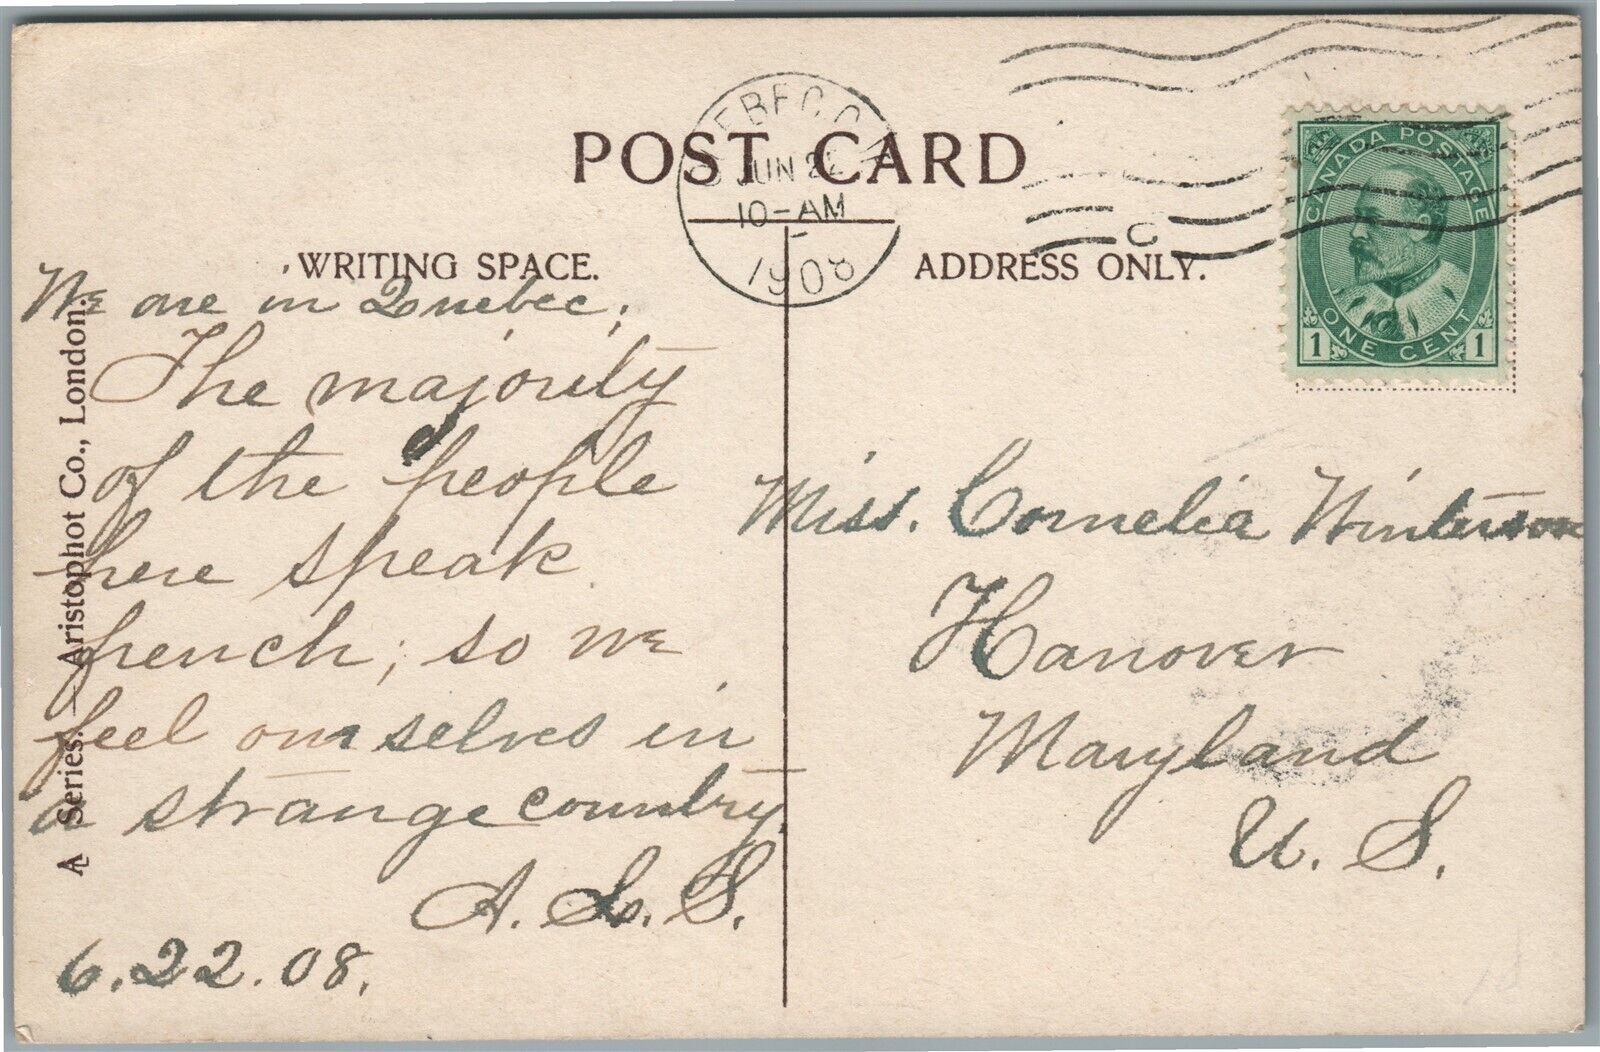 POST CARD
WRITING SPACE.
ADDRESS ONLY.
JUN 22
10-AM
1908
C
CANADA POSTAGE
1 ONE CENT 1
We are in Quebec;
The majority
of the people
here speak
french; so we
feel ourselves in
a strange country.
A. L. S.
6.22.08.
Miss. Cornelia Winterson
Hanover
Maryland
U. S.
A Series. — Aristophot Co., London.